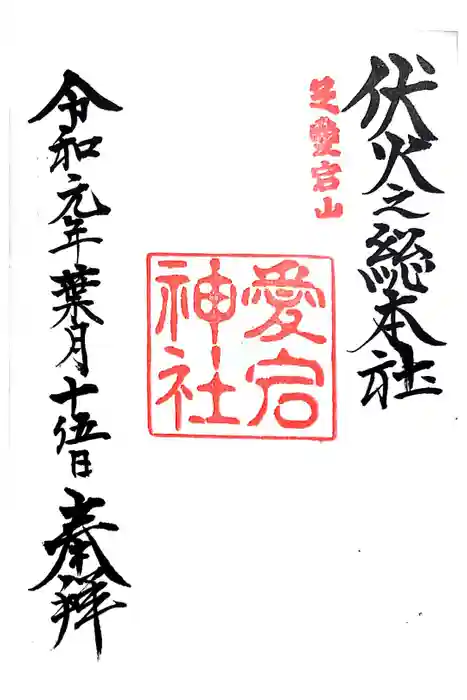 伏火之総本社
芝愛宕山
愛宕
神社
令和元年葉月十伍日
奉拝